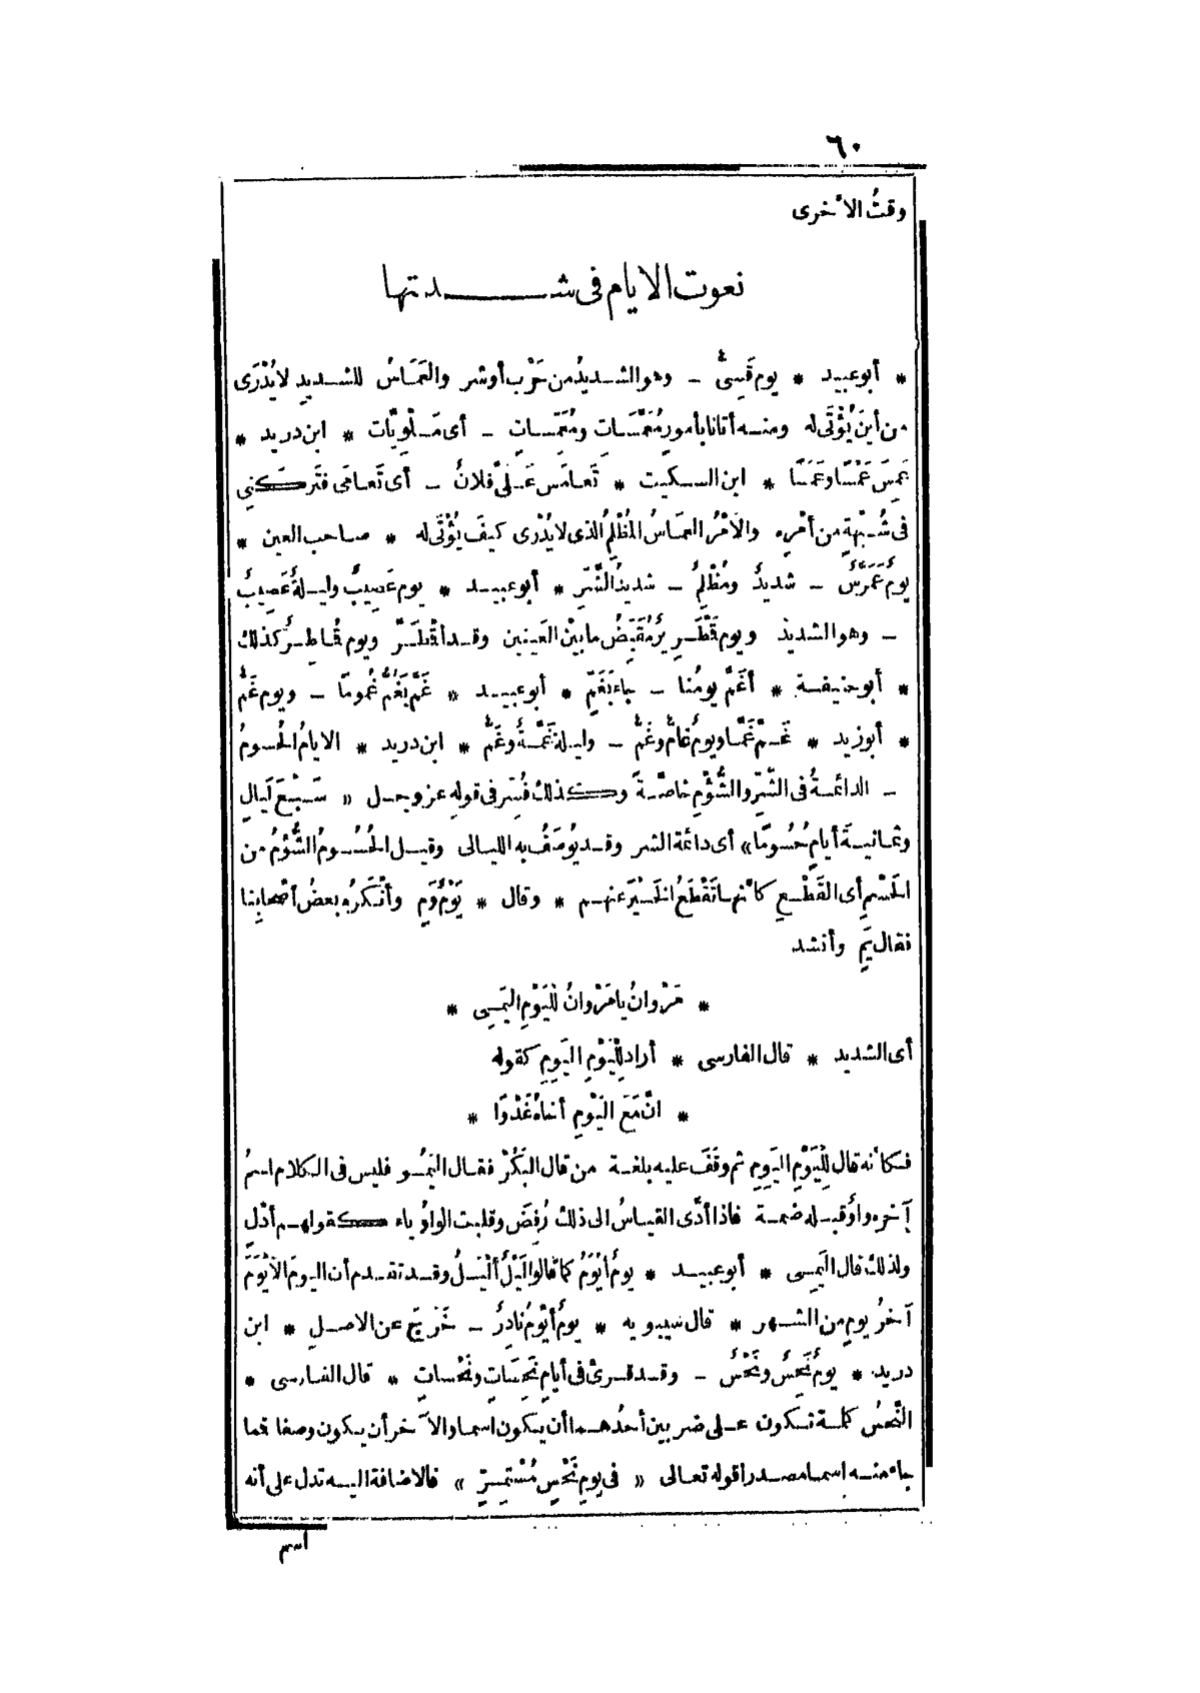 ٦٠
وقتُ الاُخرى
نعوت الايام فى شدتها
* أبو عبيد * يوم قَسِىٌّ - وهو الشديدُ من حَرْب أو شر والعَمَاسُ للشديدِ لا يُدْرَى
من أينَ يُؤْتَى له ومنه أتانا بأمورٍ مُعَمَّسَاتٍ ومُعَمِّسَاتٍ - أى مَلْوِيَّات * ابن دريد *
عَمِسَ عَمْسًا وعَمَسًا * ابن السكيت * تَعامَس عَلَىَّ فلانٌ - أى تَعامَى فتَركَنِى
فى شُبْهةٍ من أمْرِه والاَمْرُ العمَاسُ المُظْلِمُ الذى لا يُدْرَى كيفَ يُؤْتَى له * صاحب العين *
يومٌ عَمَرَّسٌ - شديدٌ ومُظْلِمٌ - شديدُ الشَّرِّ * أبو عبيد * يوم عَصِيبٌ وليلةٌ عَصِيبٌ
- وهو الشديدُ ويوم قَمْطَرِيرٌ مُقَبِّضُ ما بيْن العَينين وقد اقْمَطَرَّ ويوم قُمَاطِرٌ كذلك
* أبو حنيفة * أغَمَّ يومُنا - جاء بَغَمٍّ * أبو عبيد * غَمَّ يَغُمُّ غُمومًا - ويوم غَمٌّ
* أبو زيد * غَمَّ غَمًّا ويومٌ غامٌّ وغَمٌّ - وليلة غَمَّةٌ وغَمٌّ * ابن دريد * الايامُ الحُسومُ
- الدائمةُ فى الشَّرِّ والشُّؤْمِ خاصّةً وكذلك فُسِّر فى قوله عز وجل « سَبْعَ لَيالٍ
وثمانيةَ أيامٍ حُسُومًا» أى دائمة الشر وقد يُوصَفُ به الليالى وقيل الحُسُومُ الشُّؤْمُ من
الحَسْمِ أى القَطْعِ كأنها تَقْطَعُ الخَيْرَ عنهم * وقال * يَوْمٌ وَمٍ وأنْكَرَه بعضُ أصْحابِنا
فقال يَمٍ وأنشد
* مَرْوانُ يا مَرْوانُ لِلْيَوْمِ اليَمِى *
أى الشديد * قال الفارسى * أراد لِلْيَوْمِ اليَوِمِ كقوله
* انَّ مَعَ اليَوْمِ أخاهُ غَدْوَا *
فكأنه قال لِلْيَوْمِ اليَوِمِ ثم وقَفَ عليه بلغة من قال البَكُرْ فقال اليَمُو فليس فى الكلام اسمٌ
آخره واوٌ قبله ضمة فاذا أدَّى القياسُ الى ذلك رُفِضَ وقلبت الواوُ ياء كقولهم أدْلٍ
ولذلك قال اليَمِى * أبو عبيد * يومٌ أيْوَمُ كما قالوا لَيْلٌ ألْيَلُ وقد تقدم أن اليومَ الاَيْوَمَ
آخرُ يومٍ من الشهر * قال سيبويه * يومٌ أيْوَمُ نادِرٌ - خَرَجَ عن الاصلِ * ابن
دريد * يومٌ نَحِسٌ ونَحْسٌ - وقد قرئ فى أيامٍ نَحِسَاتٍ ونَحْساتٍ * قال الفارسى *
النَّحْسُ كلمة تكون على ضربين أحدُهما أن يكون اسما والآخر أن يكون وصفا فما
جاء منه اسما مصدرا قوله تعالى « فى يومِ نَحْسٍ مُسْتَمِرٍّ » فالاضافة اليه تدل على أنه
اسم